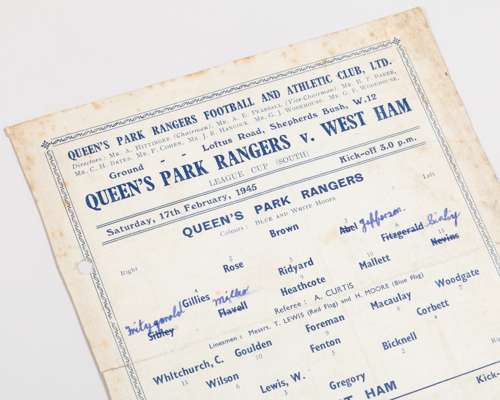 QUEEN'S PARK RANGERS FOOTBALL AND ATHLETIC CLUB, LTD.
Directors: Mr. A. Hittinger (Chairman), Mr. A. E. (Vice-Chairman), Mr. H. P. Parker,
Mr. C. H. Bates, Mr. P. Cohen, Mr. J. E. Hancock, Mr. G. J. Wodehouse, Mr. G. F. Wodehouse.
Ground - - Loftus Road, Shepherds Bush, W.12
QUEEN'S PARK RANGERS v. WEST HAM
LEAGUE CUP (SOUTH)
Saturday, 17th February, 1945 Kick-off 3.0 p.m.
QUEEN'S PARK RANGERS
Colours: Blue and White Hoops
Right Left
Brown
2 Rose 3 Abel Jefferson
4 Ridyard 6 Fitzgerald Sibley
Gillies Heathcote Mallett 11 Nevins
Fitzgerald Sibley Miller Flavell
Referee: A. CURTIS
Linesmen: Messrs. T. LEWIS (Red Flag) and H. MOORE (Blue Flag)
Whitchurch, C. Goulden Foreman Macaulay Woodgate
11 Wilson 10 Fenton Corbett
Lewis, W. Bicknell
Gregory
WEST HAM Kick-